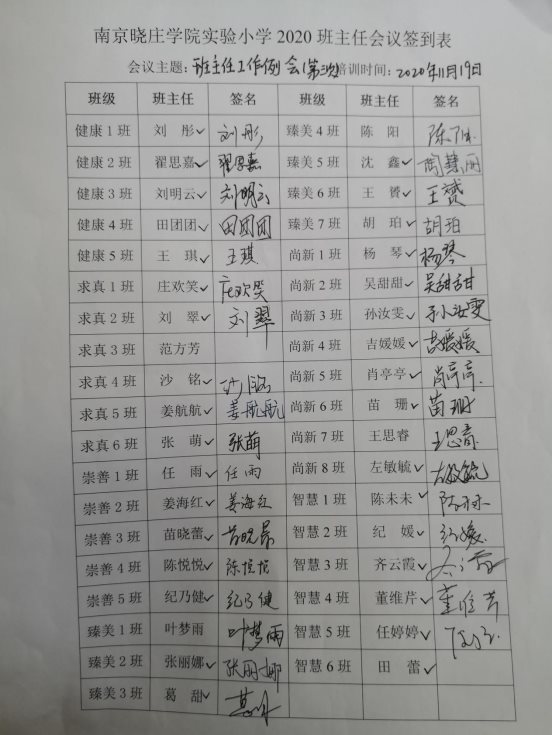 南京晓庄学院实验小学 2020 班主任会议签到表
会议主题：班主任工作例会(第三次 培训时间：2020年11月19日
班级 班主任 签名 班级 班主任 签名
健康 1 班 刘 彤✓ 刘彤 臻美 4 班 陈 阳 陈阳
健康 2 班 翟思嘉✓ 翟思嘉 臻美 5 班 沈 鑫✓ 陶慧丽
健康 3 班 刘明云✓ 刘明云 臻美 6 班 王 赟✓ 王赟
健康 4 班 田团团✓ 田团团 臻美 7 班 胡 珀✓ 胡珀
健康 5 班 王 琪✓ 王琪 尚新 1 班 杨 琴✓ 杨琴
求真 1 班 庄欢笑✓ 庄欢笑 尚新 2 班 吴甜甜✓ 吴甜甜
求真 2 班 刘 翠✓ 刘翠 尚新 3 班 孙汝雯✓ 孙汝雯
求真 3 班 范方芳 尚新 4 班 吉媛媛✓ 吉媛媛
求真 4 班 沙 铭✓ 沙铭 尚新 5 班 肖亭亭✓ 肖亭亭
求真 5 班 姜航航✓ 姜航航 尚新 6 班 苗 珊✓ 苗珊
求真 6 班 张 萌✓ 张萌 尚新 7 班 王思睿 王思睿
崇善 1 班 任 雨✓ 任雨 尚新 8 班 左敏毓✓ 左敏毓
崇善 2 班 姜海红✓ 姜海红 智慧 1 班 陈未未✓ 陈未未
崇善 3 班 苗晓蕾✓ 智慧 2 班 纪 媛✓ 纪媛
崇善 4 班 陈悦悦✓ 陈悦悦 智慧 3 班 齐云霞✓
崇善 5 班 纪乃健✓ 纪乃健 智慧 4 班 董维芹✓ 董维芹
臻美 1 班 叶梦雨 叶梦雨 智慧 5 班 任婷婷✓
臻美 2 班 张丽娜✓ 张丽娜 智慧 6 班 田 蕾✓
臻美 3 班 葛 甜✓